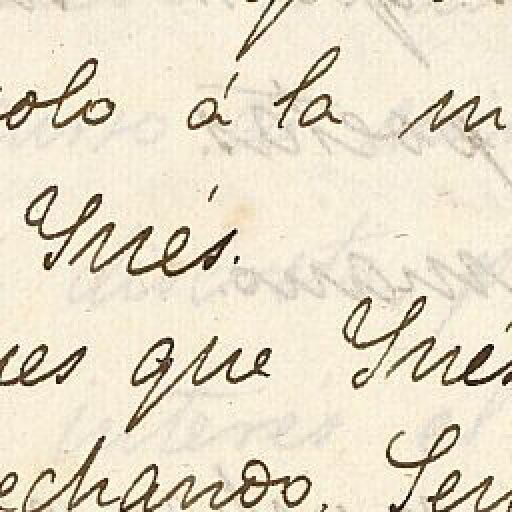 solo á la m
Inés.
ues que Inés
echando. Sen